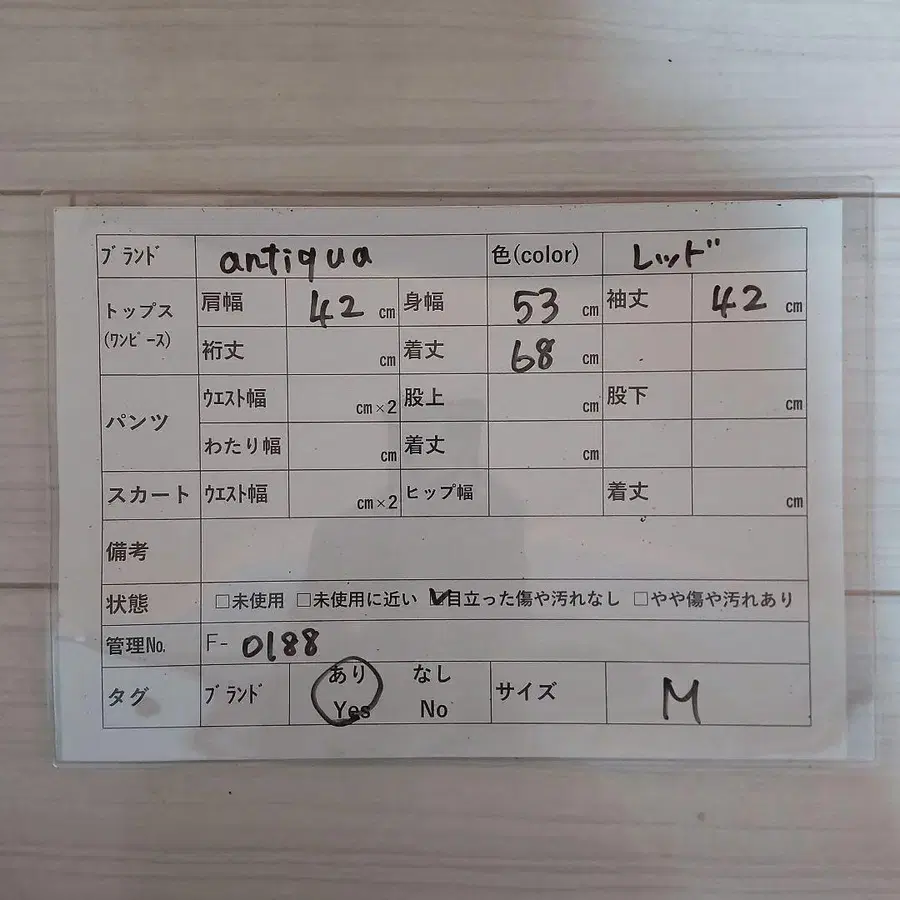 ブランド antiqua 色(color) レッド
トップス(ワンピース) 肩幅 42 cm 身幅 53 cm 袖丈 42 cm
裄丈 cm 着丈 68 cm
パンツ ウエスト幅 cm×2 股上 cm 股下 cm
わたり幅 cm 着丈 cm
スカート ウエスト幅 cm×2 ヒップ幅 着丈 cm
備考
状態 □未使用 □未使用に近い ☑目立った傷や汚れなし □やや傷や汚れあり
管理No. F- 0188
タグ ブランド あり Yes なし No サイズ M